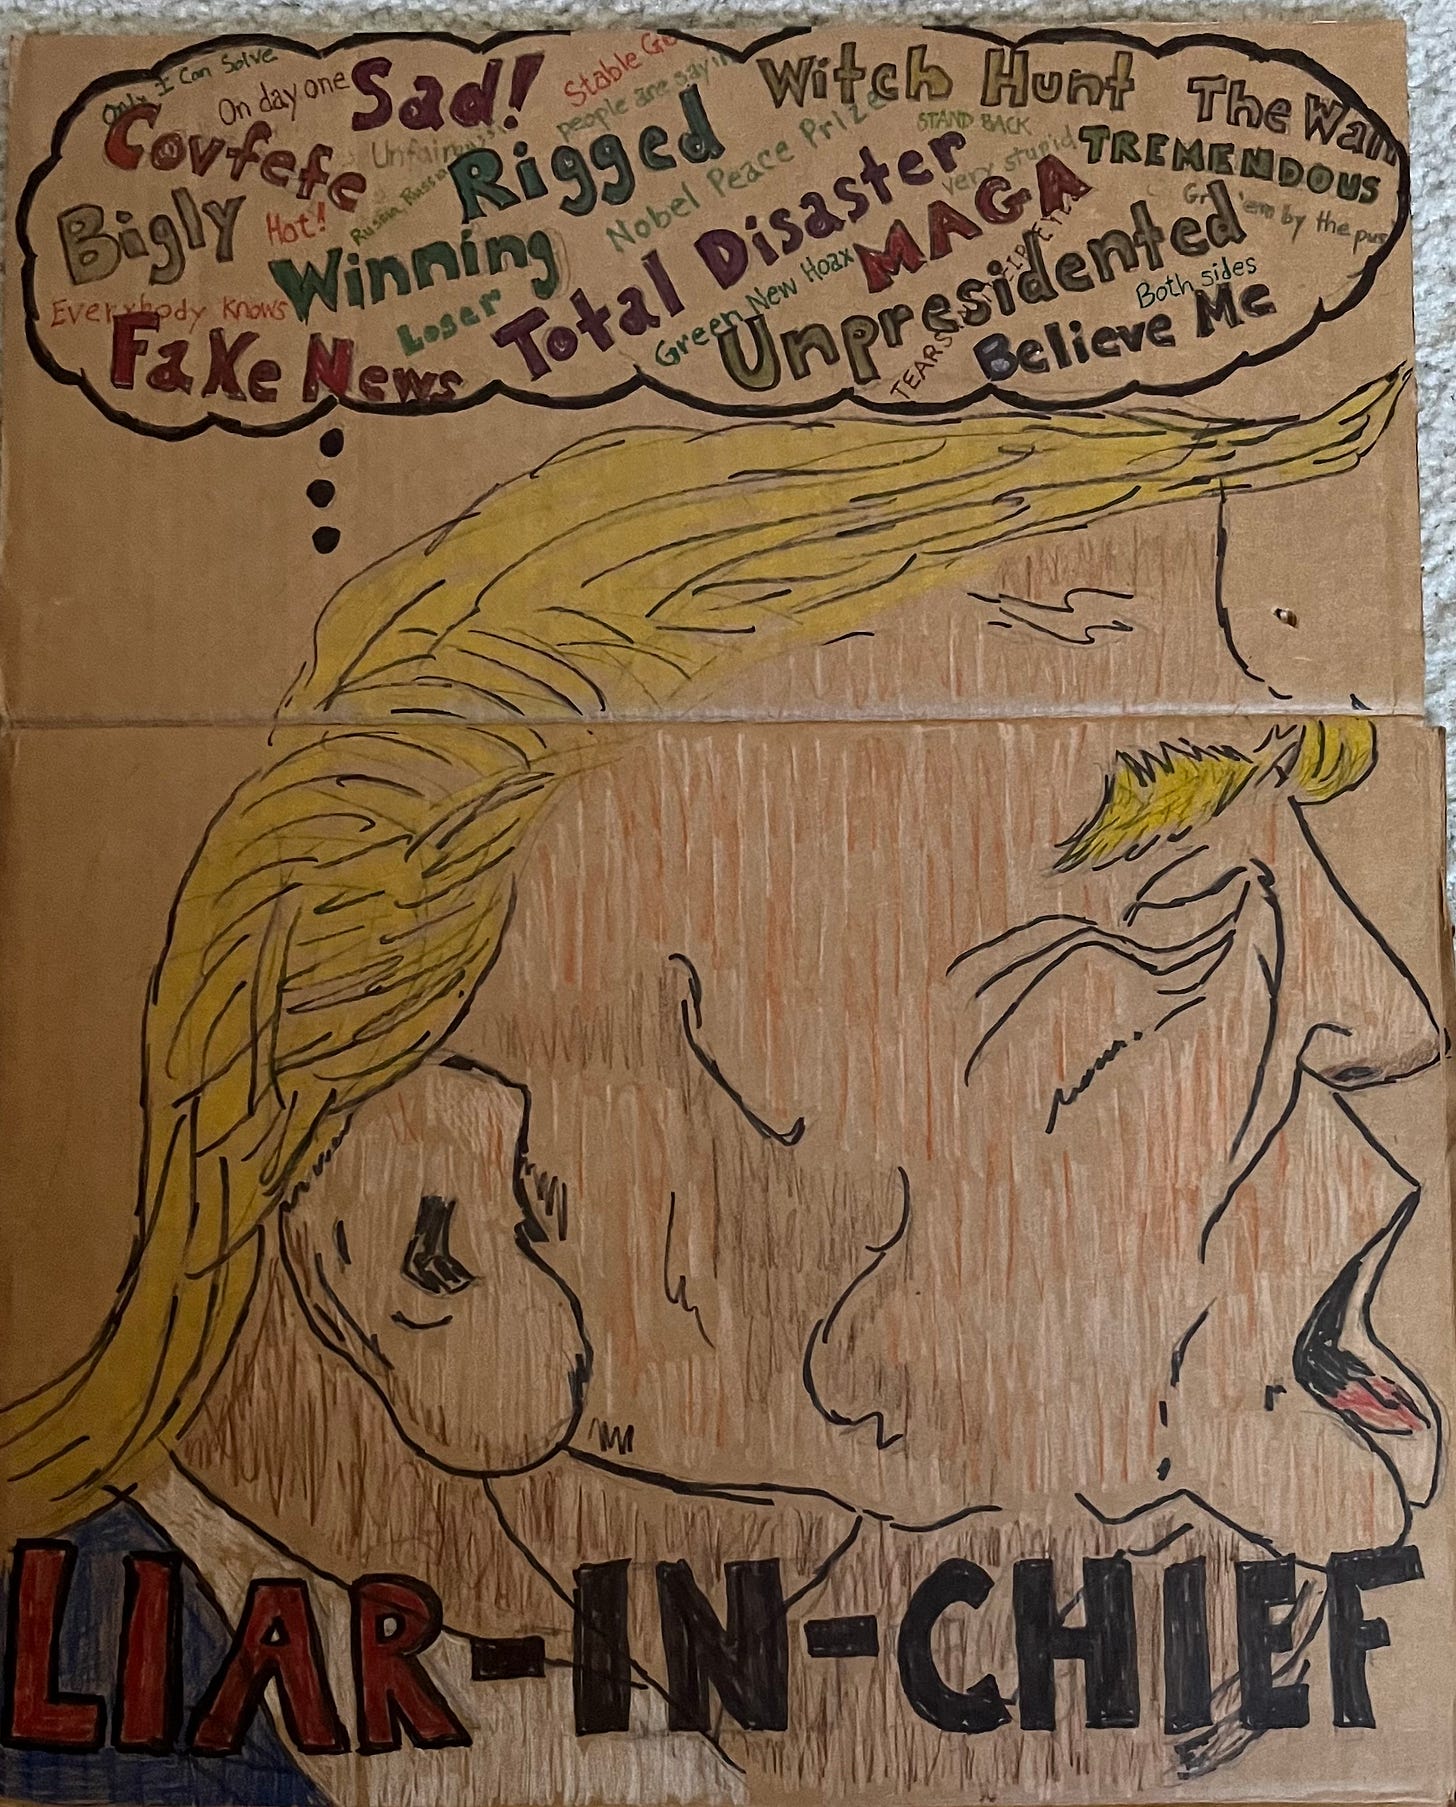 Only I Can Solve
On day one
Sad!
Stable Ge
people are sayin
Witch Hunt
The Wall
Covfefe
Unfair
Rigged
Nobel Peace Prize
STAND BACK
very stupid
TREMENDOUS
Bigly
Hot!
Russia, Russia
Winning
Total Disaster
MAGA
Gr 'em by the pus
Everybody Knows
Loser
Green New Hoax
Unpresidented
Both sides
Fake News
TEARS
Believe Me
LIAR-IN-CHIEF